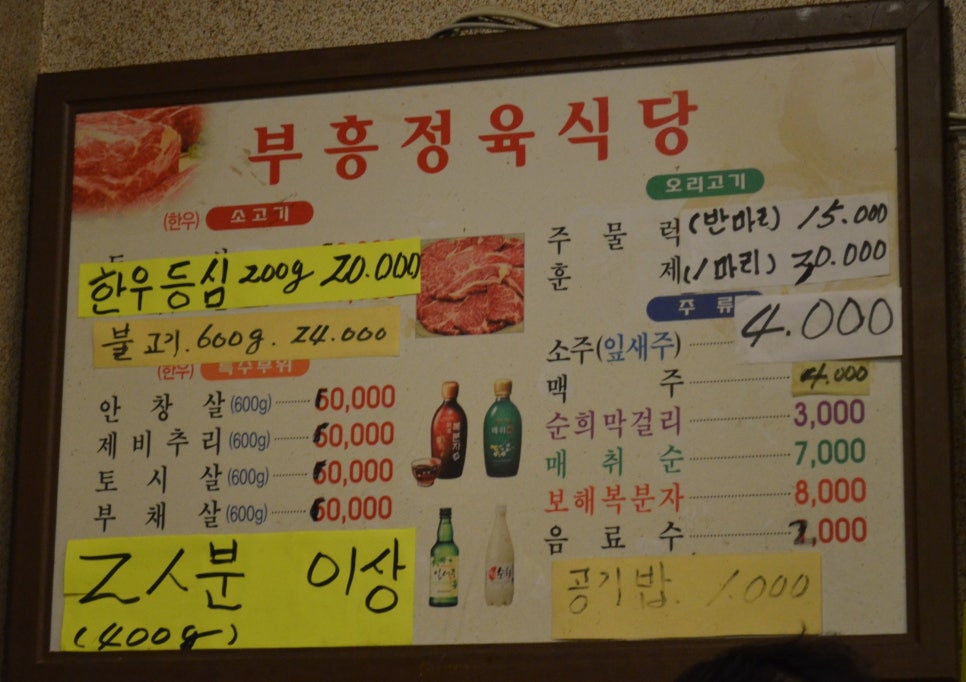 부흥정육식당
(한우) 소고기
한우등심 200g 20.000
불고기. 600g. 24.000
(한우) 특수부위
안창살(600g) 60,000
제비추리(600g) 60,000
토시살(600g) 60,000
부채살(600g) 60,000
2인분 이상
(400g)
오리고기
주물럭(반마리) 15.000
훈제(1마리) 30.000
주류
소주(잎새주) 4.000
맥주 4.000
순희막걸리 3,000
매취순 7,000
보해복분자 8,000
음료수 ,000
공기밥. 1.000